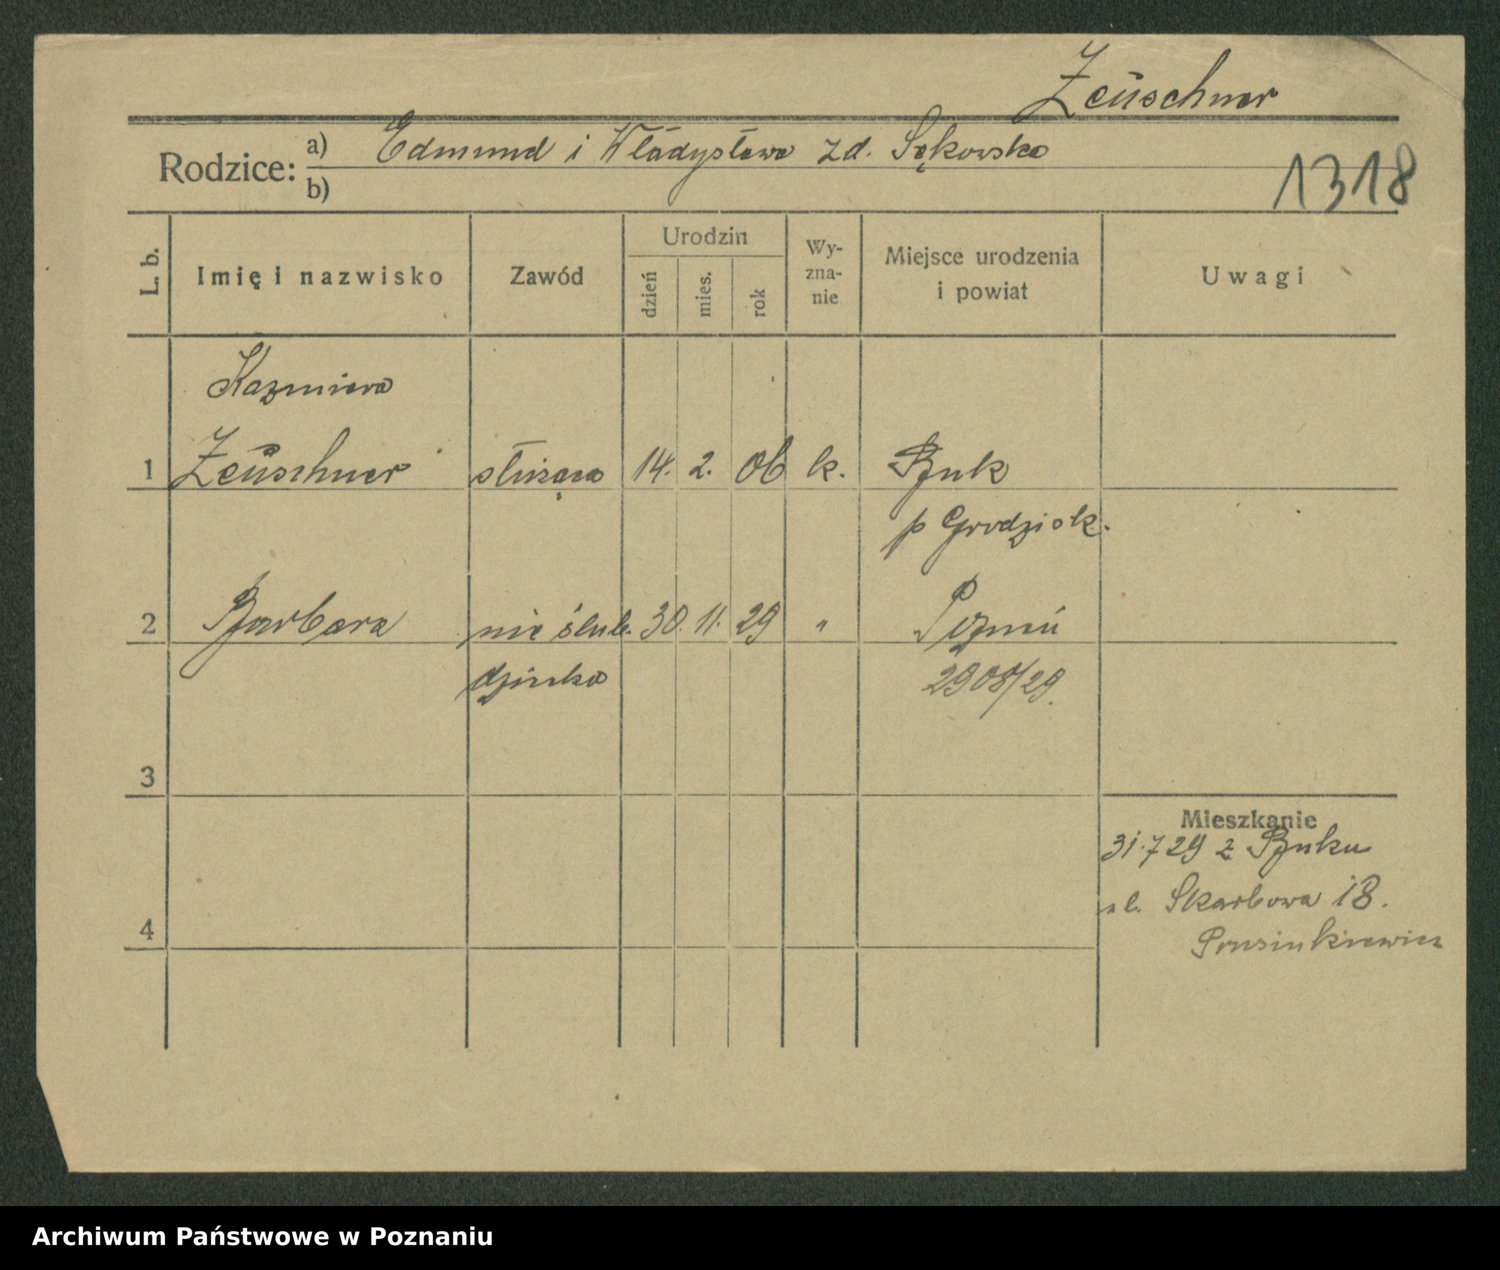 Zeüschner
Rodzice: a) Edmund i Władysława zd. Sękowska
b)
1318
L. b. Imię i nazwisko Zawód Urodzin dzień mies. rok Wy-zna-nie Miejsce urodzenia i powiat Uwagi
Kazmiera
1 Zeüschner służąca 14. 2. 06 k. Buk
p Grodzisk.
2 Barbara nie ślub. 30. 11. 29 " Poznań
dziecko 2908/29.
3
Mieszkanie
31.7 29 z Buku
ul. Skarbowa 18.
4
Prusinkiewicz
Archiwum Państwowe w Poznaniu